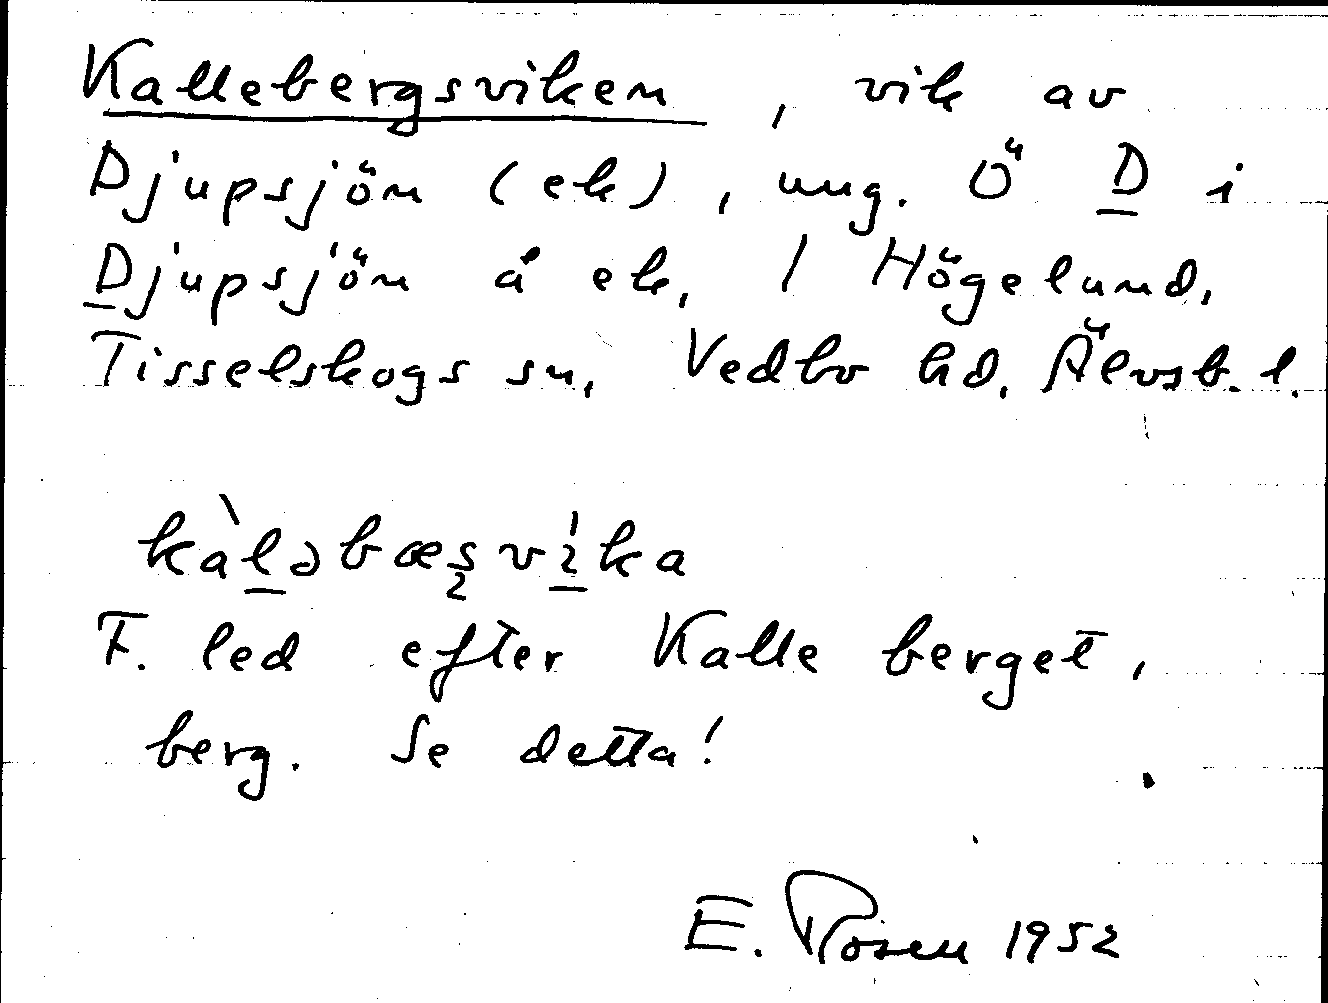 Kallebergsviken, vik av
Djupsjön (ek), ung. Ö D i
Djupsjön å ek, / Högelund,
Tisselskogs sn, Vedbo hd. Älvsb. l.
kàləbæʂvíka
F. led efter Kalle berget,
berg. Se detta!
E. Rosen 1952